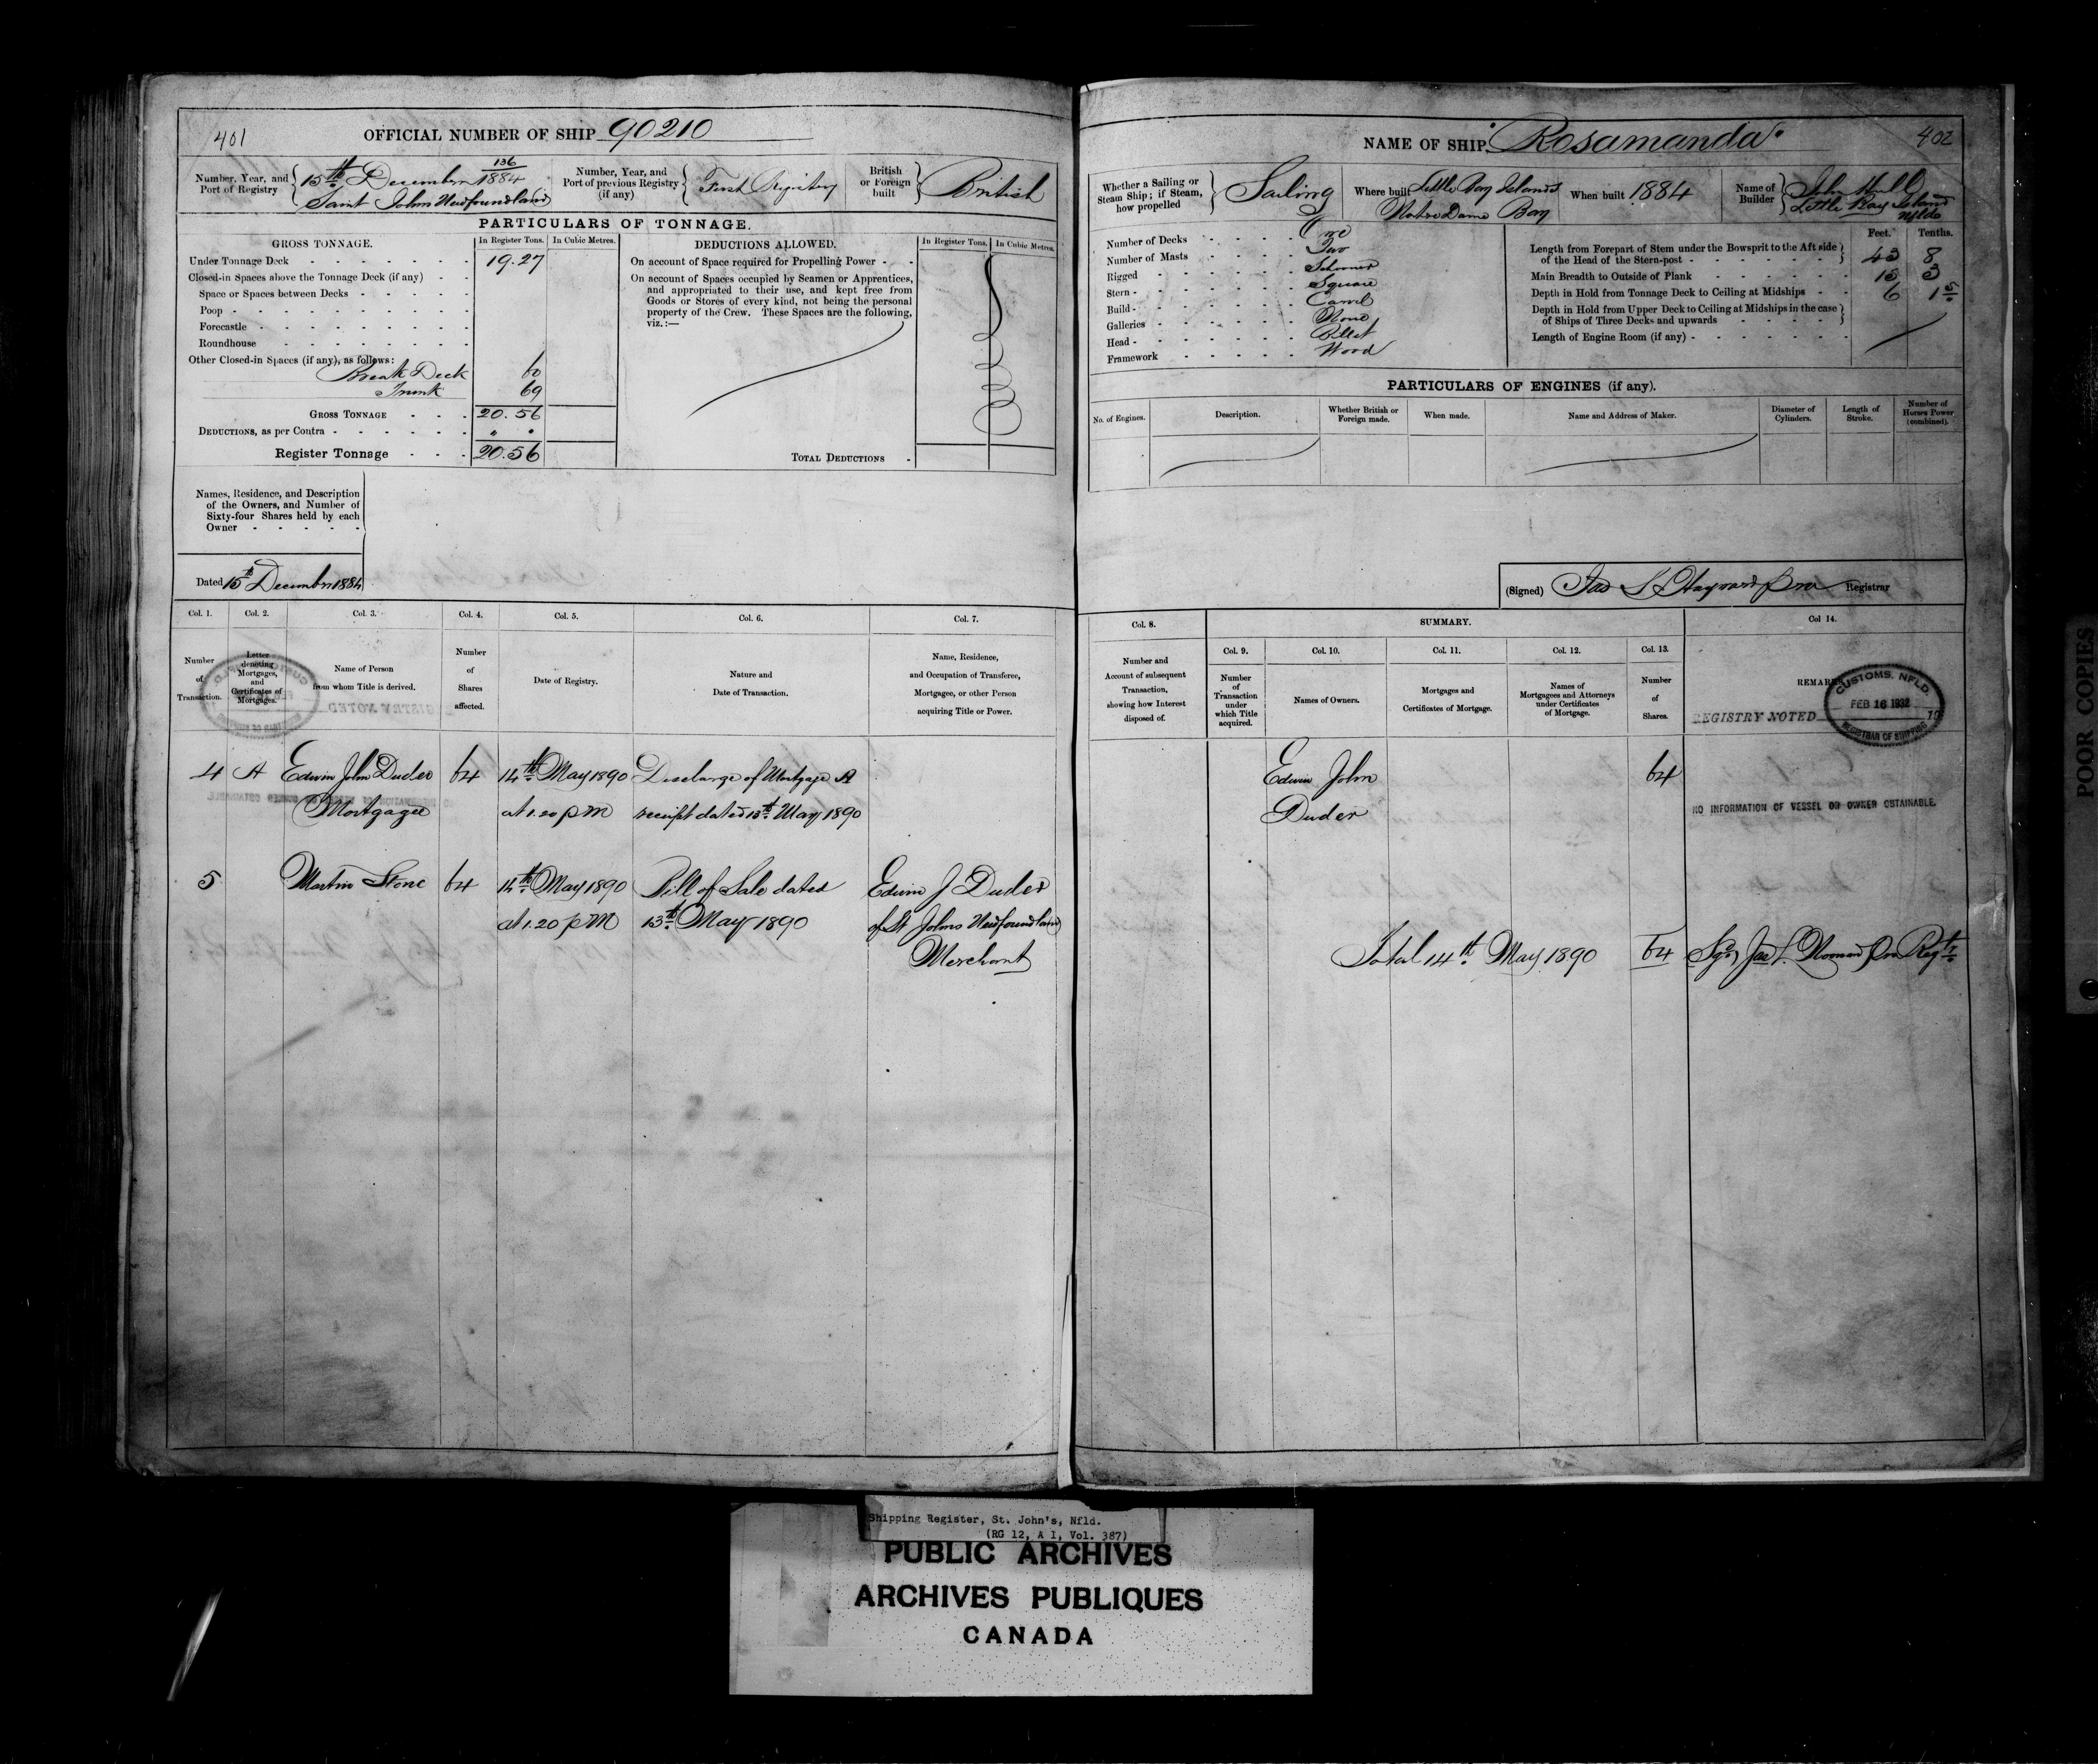 401
OFFICIAL NUMBER OF SHIP 90210
Number, Year, and Port of Registry
136
15th December 1884
Saint Johns Newfoundland
Number, Year, and Port of previous Registry (if any)
First Registry
British or Foreign built
British
PARTICULARS OF TONNAGE.
GROSS TONNAGE.
In Register Tons.
In Cubic Metres.
Under Tonnage Deck 19.27
Closed-in Spaces above the Tonnage Deck (if any)
Space or Spaces between Decks
Poop
Forecastle
Roundhouse
Other Closed-in Spaces (if any), as follows:
Break Deck 60
Trunk 69
GROSS TONNAGE 20.56
DEDUCTIONS, as per Contra
Register Tonnage 20.56
DEDUCTIONS ALLOWED.
In Register Tons.
In Cubic Metres.
On account of Space required for Propelling Power
On account of Spaces occupied by Seamen or Apprentices,
and appropriated to their use, and kept free from
Goods or Stores of every kind, not being the personal
property of the Crew. These Spaces are the following,
viz.:—
TOTAL DEDUCTIONS
Names, Residence, and Description
of the Owners, and Number of
Sixty-four Shares held by each
Owner
Dated 15th December 1884
Col. 1. Col. 2. Col. 3. Col. 4. Col. 5. Col. 6. Col. 7.
Number of Transaction.
Letter denoting Mortgages, and Certificates of Mortgages.
Name of Person from whom Title is derived.
Number of Shares affected.
Date of Registry.
Nature and Date of Transaction.
Name, Residence, and Occupation of Transferee, Mortgagee, or other Person acquiring Title or Power.
4 A Edwin John Duder 64 14th May 1890 Discharge of Mortgage A
Mortgagee at 1.20 pM receipt dated 13th May 1890
5 Martin Stone 64 14th May 1890 Bill of Sale dated Edwin J Duder
at 1.20 pM 13th May 1890 of St Johns Newfoundland
Merchant
NAME OF SHIP. Rosamanda
402
Whether a Sailing or Steam Ship; if Steam, how propelled
Sailing
Where built
Little Bay Islands
Notre Dame Bay
When built 1884
Name of Builder
John Hull
Little Bay Island
Nfld
Number of Decks One
Number of Masts Two
Rigged Schooner
Stern Square
Build Carvel
Galleries None
Head Billet
Framework Wood
Feet. Tenths.
Length from Forepart of Stem under the Bowsprit to the Aft side
of the Head of the Stern-post 43 8
Main Breadth to Outside of Plank 15 3
Depth in Hold from Tonnage Deck to Ceiling at Midships 6 1 5
Depth in Hold from Upper Deck to Ceiling at Midships in the case
of Ships of Three Decks and upwards
Length of Engine Room (if any)
PARTICULARS OF ENGINES (if any).
No. of Engines.
Description.
Whether British or Foreign made.
When made.
Name and Address of Maker.
Diameter of Cylinders.
Length of Stroke.
Number of Horses Power (combined).
(Signed) Registrar
Col. 8.
SUMMARY.
Col 14.
Col. 9. Col. 10. Col. 11. Col. 12. Col. 13.
Number and Account of subsequent Transaction, showing how Interest disposed of.
Number of Transaction under which Title acquired.
Names of Owners.
Mortgages and Certificates of Mortgage.
Names of Mortgagees and Attorneys under Certificates of Mortgage.
Number of Shares.
REMARKS
REGISTRY NOTED 19
CUSTOMS, NFLD.
FEB 16 1932
REGISTRAR OF SHIPPING
Edwin John 64
Duder
NO INFORMATION OF VESSEL OR OWNER OBTAINABLE.
Total 14th May 1890 64
POOR COPIES
Shipping Register, St. John's, Nfld.
(RG 12, A I, Vol. 387)
PUBLIC ARCHIVES
ARCHIVES PUBLIQUES
CANADA